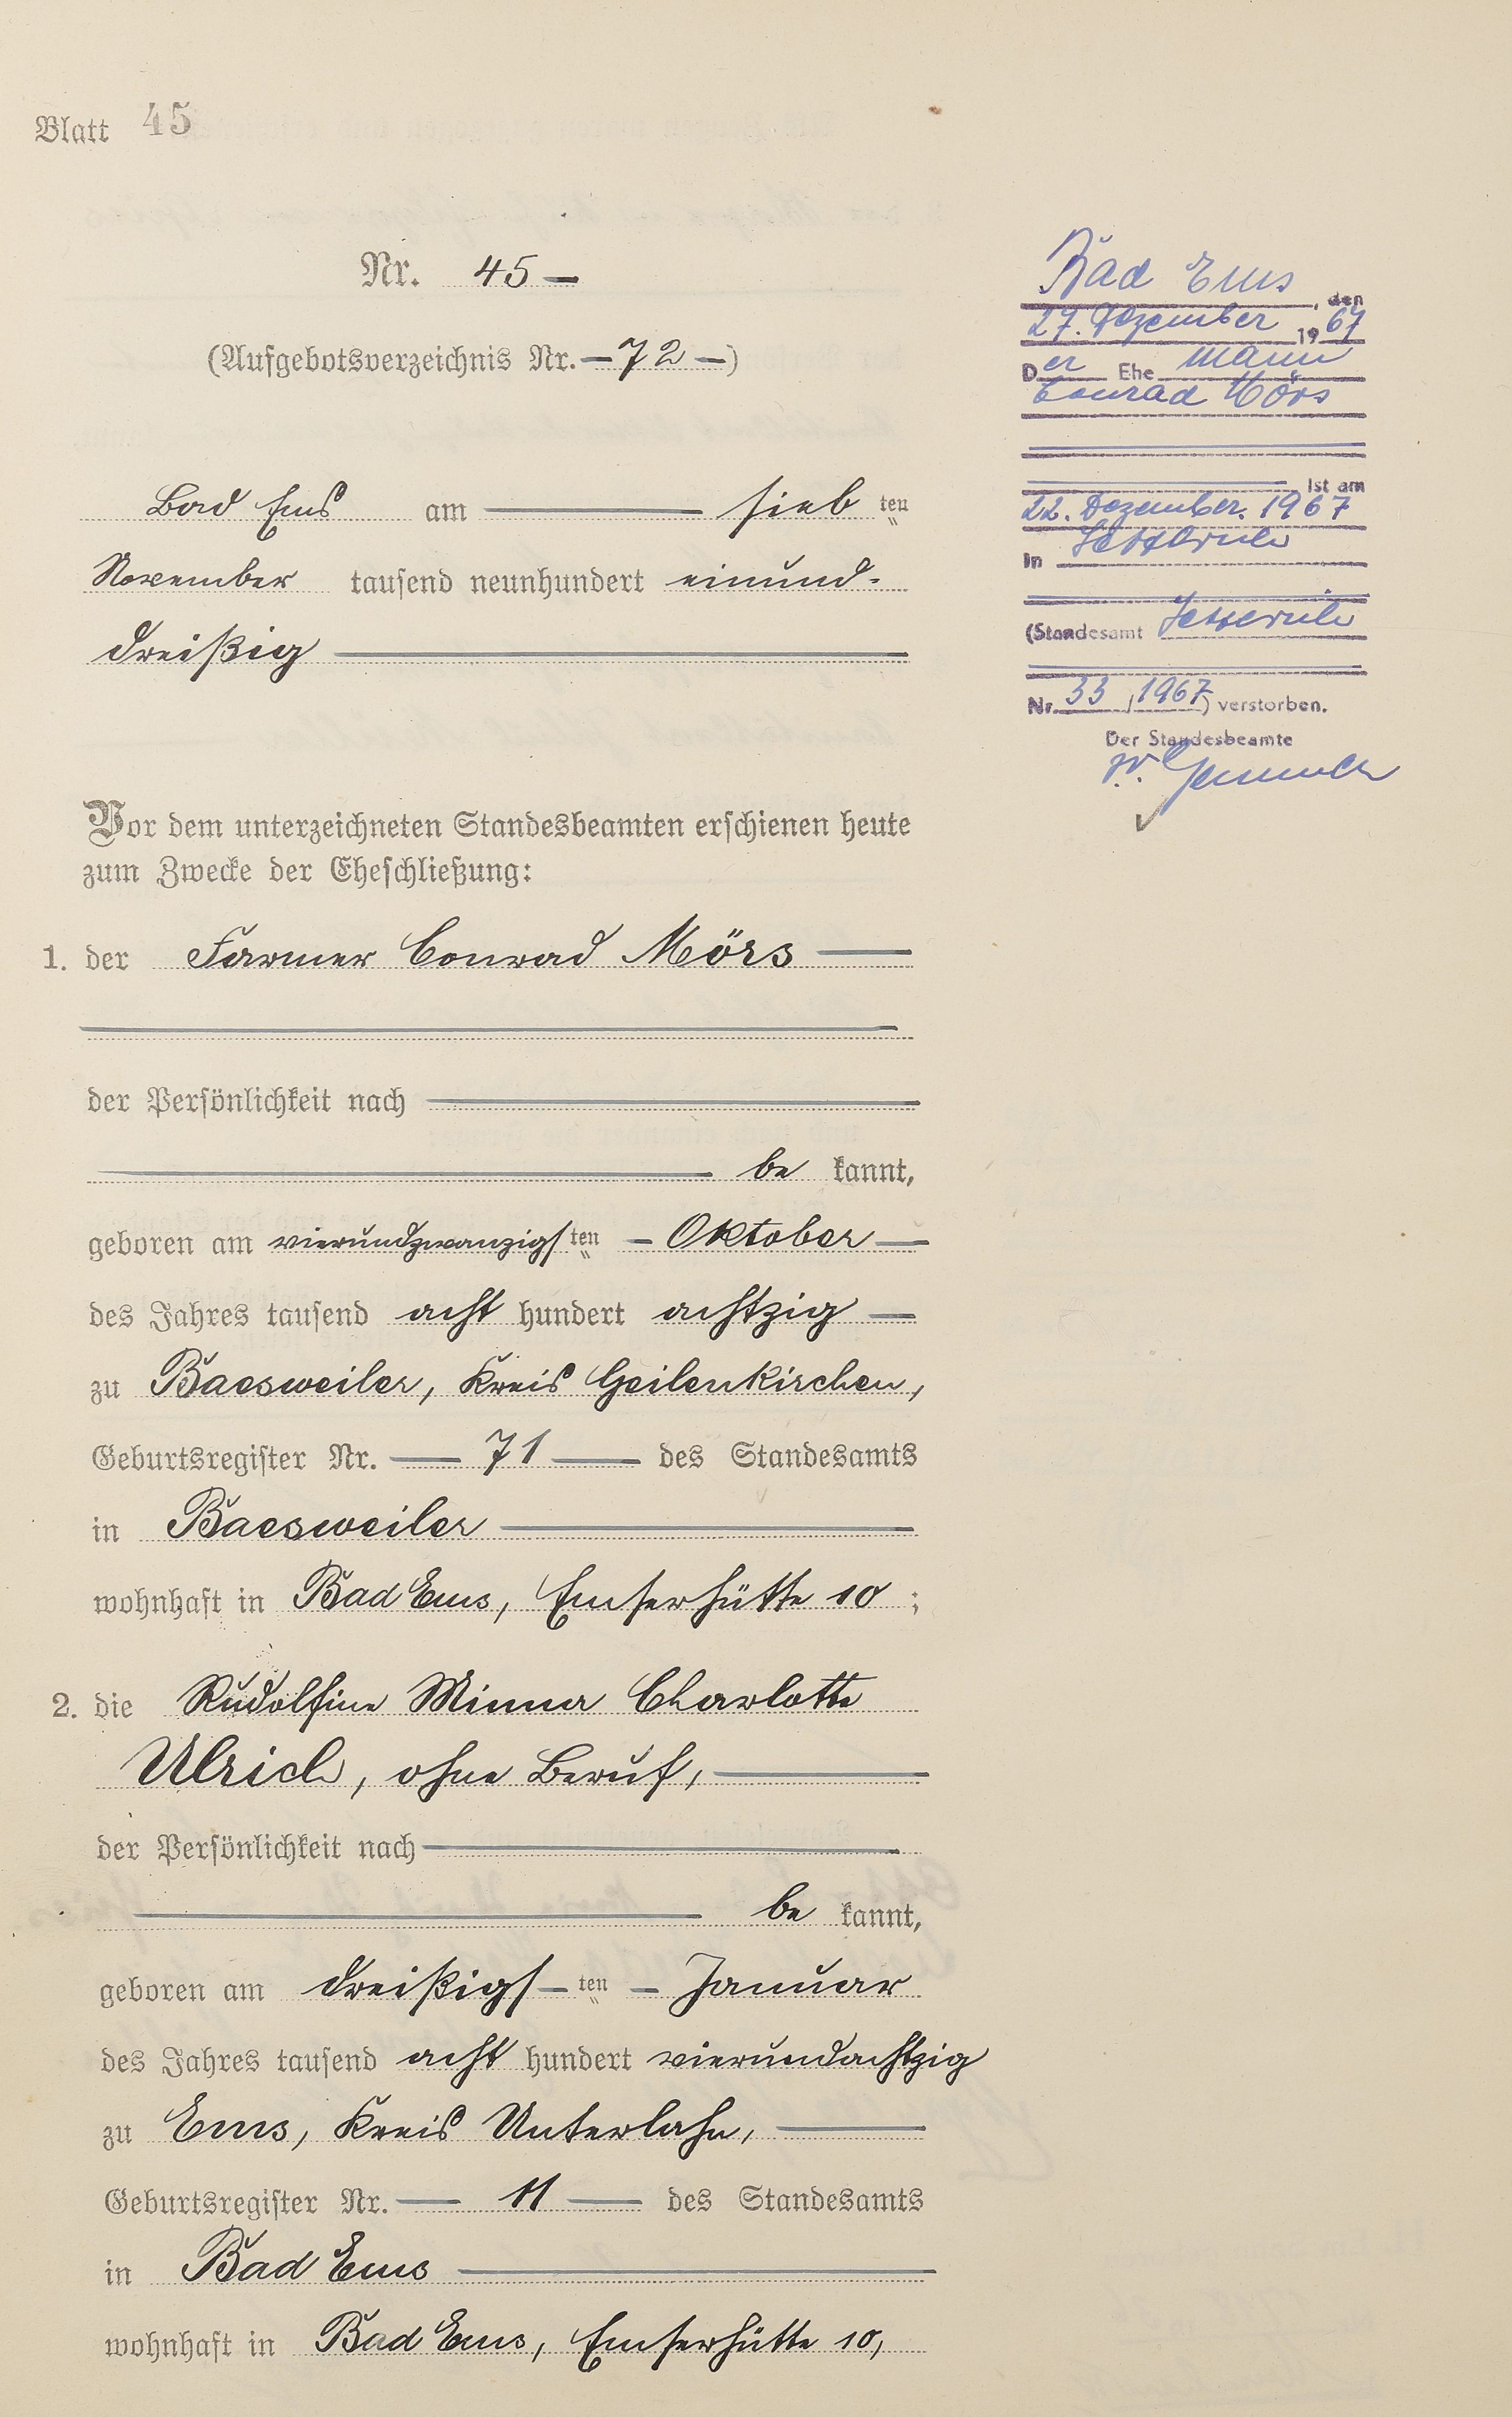 Blatt 45
Nr. 45 —
(Aufgebotsverzeichnis Nr. — 72 —)
Bad Ems am — sieb ten
November tausend neunhundert einund-
dreißig —
Vor dem unterzeichneten Standesbeamten erschienen heute
zum Zwecke der Eheschließung:
1. der Farmer Conrad Mörs —
der Persönlichkeit nach —
— be kannt,
geboren am vierundzwanzigs ten — Oktober —
des Jahres tausend acht hundert achtzig —
zu Baesweiler, Kreis Geilenkirchen,
Geburtsregister Nr. — 71 — des Standesamts
in Baesweiler —
wohnhaft in Bad Ems, Emserhütte 10 ;
2. die Rudolfine Minna Charlotte
Ulrich, ohne Beruf, —
der Persönlichkeit nach —
— be kannt,
geboren am dreißigs — ten — Januar
des Jahres tausend acht hundert vierundachtzig
zu Ems, Kreis Unterlahn, —
Geburtsregister Nr. — 11 — des Standesamts
in Bad Ems —
wohnhaft in Bad Ems, Emserhütte 10,
Bad Ems, den
27. Dezember 1967
Der Ehemann
Conrad Mörs
ist am
22. Dezember 1967
in
(Standesamt
Nr. 33 / 1967) verstorben.
Der Standesbeamte